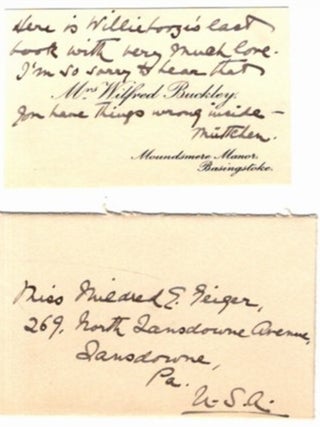 Here is Willieboozie's last
book with very much love.
I'm so sorry to hear that
Mrs Wilfred Buckley.
you have things wrong inside –
Müttchen.
Moundsmere Manor.
Basingstoke.
Miss Mildred E. Geiger,
269, North Lansdowne Avenue,
Lansdowne,
Pa.
U.S.A.